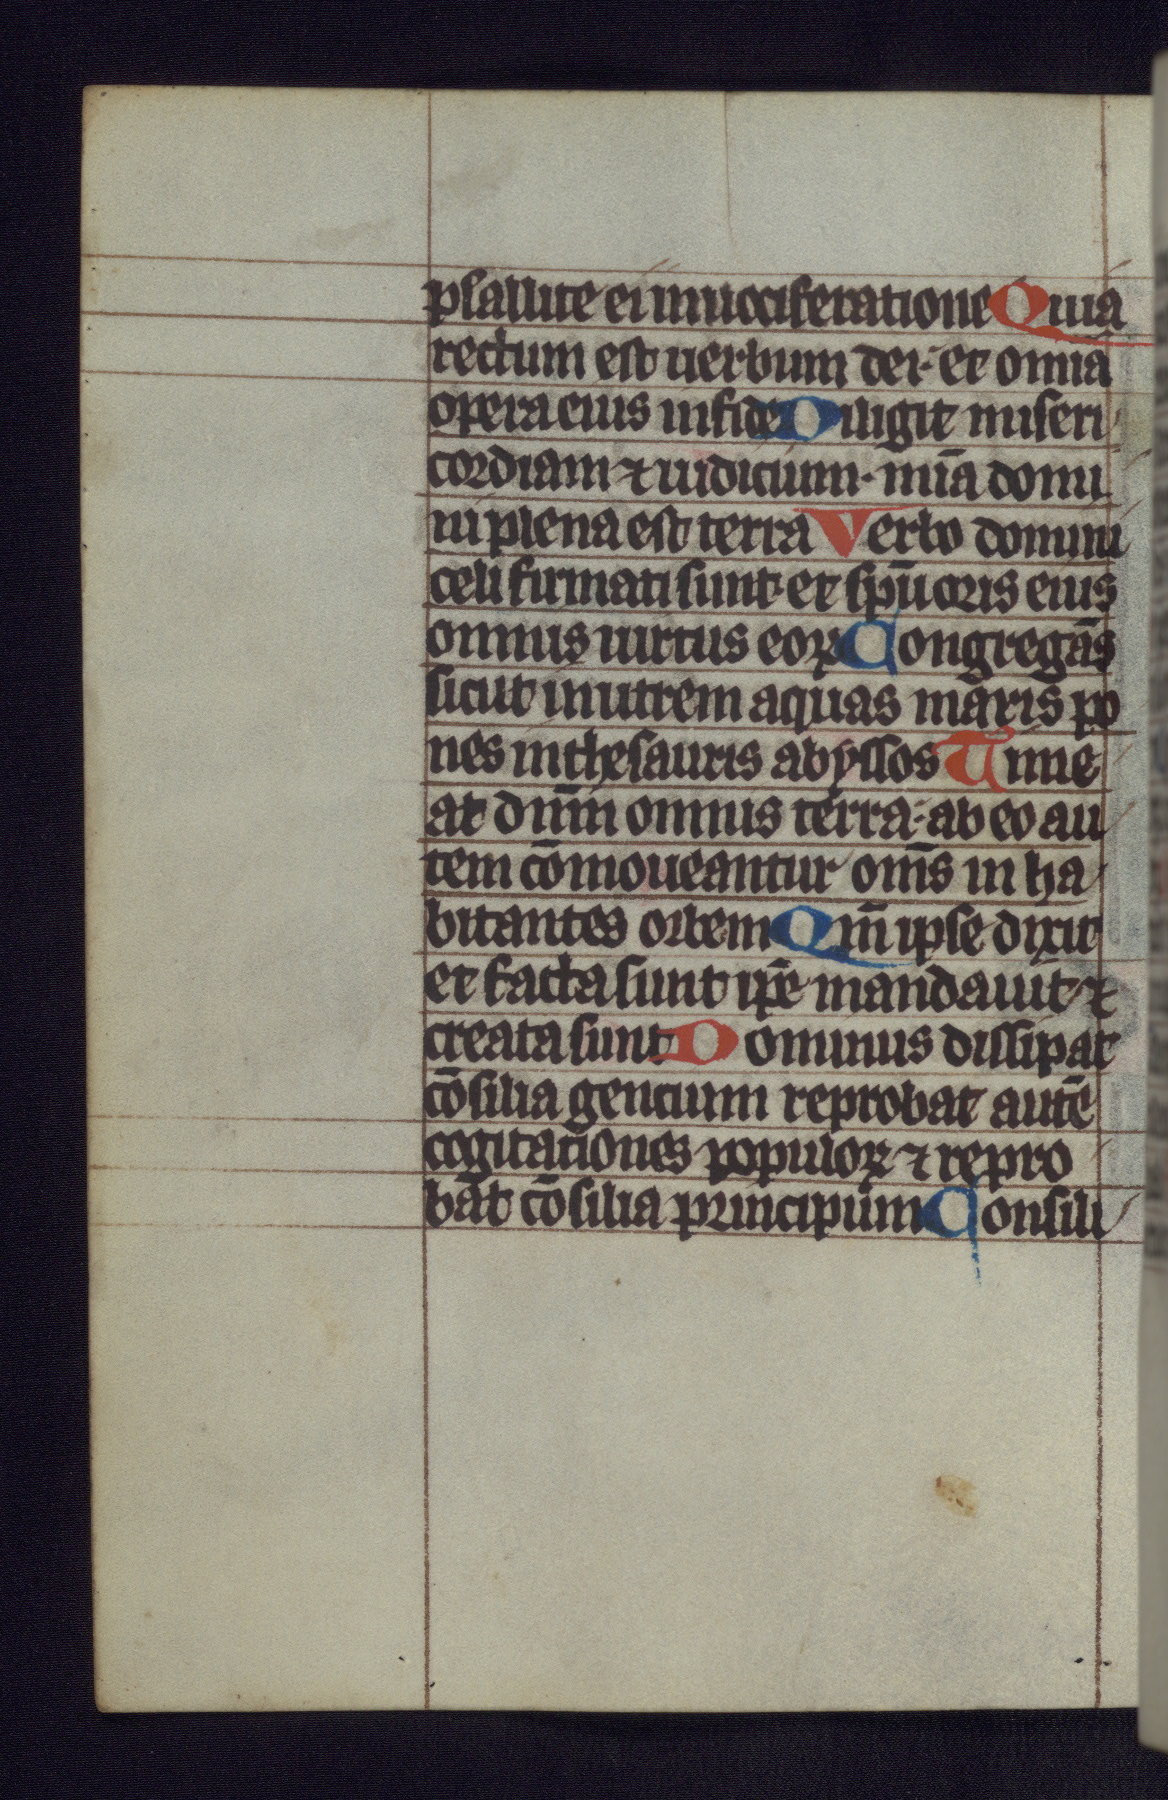 psallite ei in uociferatione Quia
rectum est uerbum dei· et omnia
opera eius in fide Diligit miseri
cordiam ⁊ iudicium· mīa domi
ni plena est terra Verbo domini
celi firmati sunt· et sp̄u oris eius
omnis uirtus eoꝝ Congregās
sicut in utrem aquas maris po
nes in thesauris abyssos Time
at dn̄m omnis terra· ab eo au
tem cōmoueantur om̄s in ha
bitantes orbem Qm̄ ipse dixit
et facta sunt ip̄e mandauit ⁊
creata sunt Dominus dissipat
cōsilia gencium reprobat autē
cogitationes populoꝝ ⁊ repro
bat cōsilia principum Consili